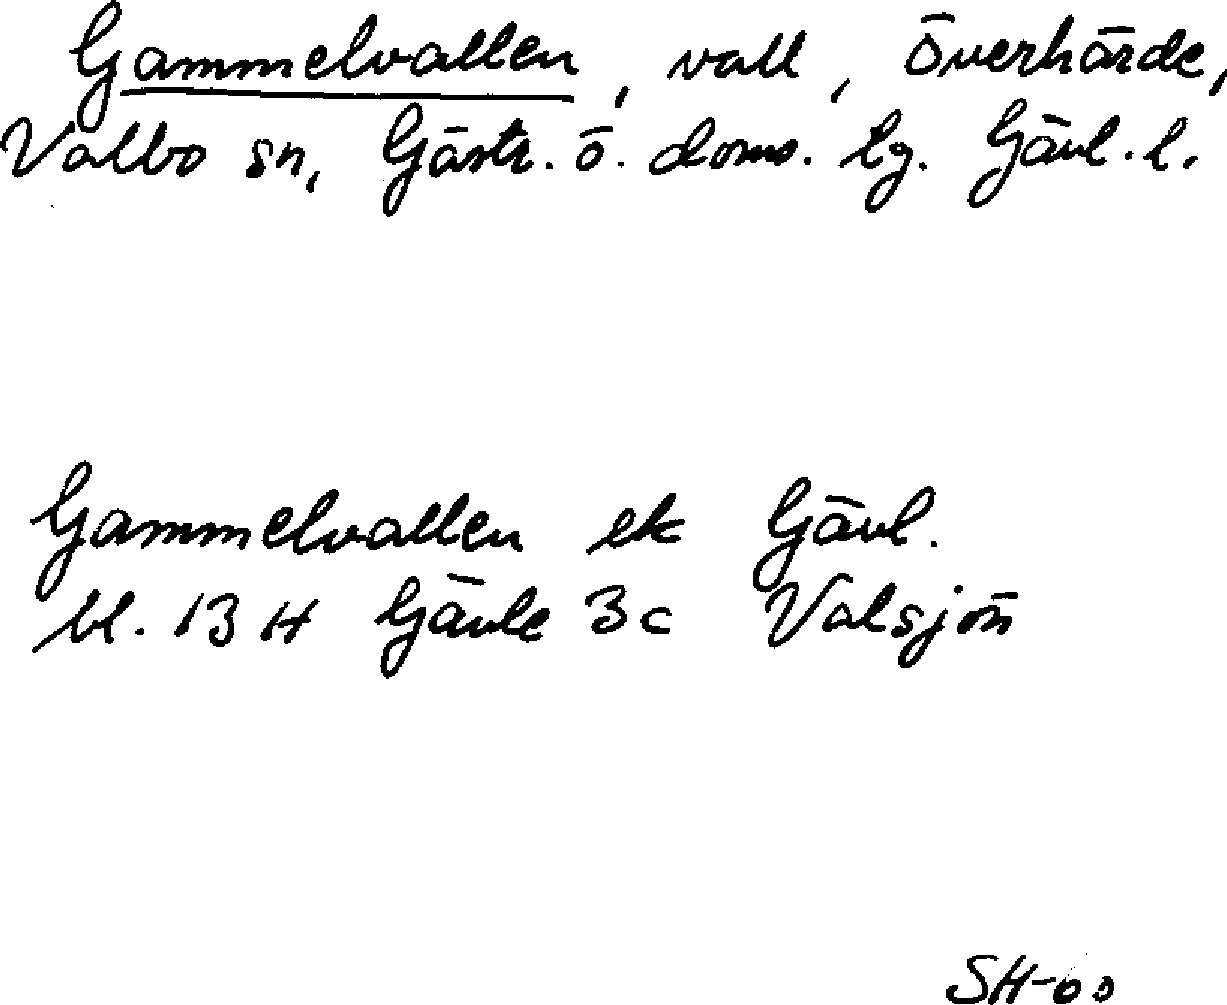 Gammelvallen, vall, Överhärde,
Valbo sn, Gästr. ö. doms. lg. Gävl. l.
Gammelvallen ek Gävl.
bl. 13 H Gävle 3c Valsjön
SH-60